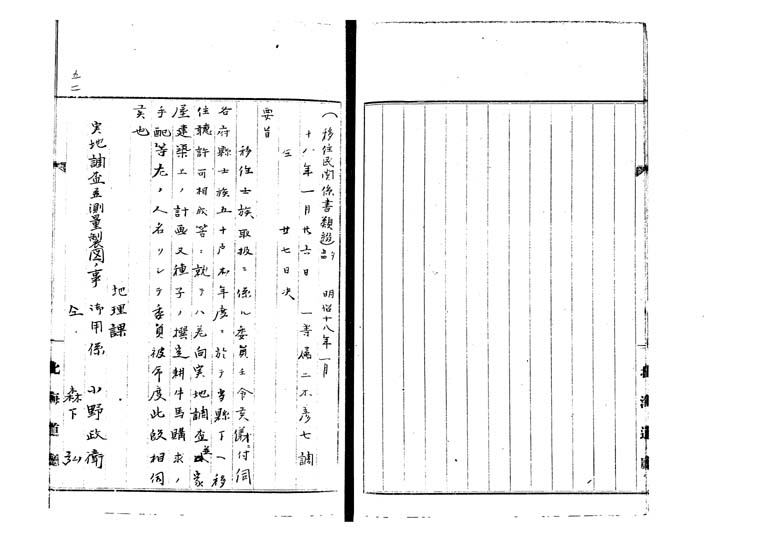 (一)移住民関係書類 明治十八年一月
十八年一月廿六日 一等属二木彦七調
仝 廿七日決
要旨
移住士族取扱ニ係ル委員ヲ命儀ニ付伺
各府縣士族五十戸本年度ニ於テ当縣下ヘ移
住聴許可相成等ニ就テハ差向実地調査並家
屋建築上ノ計画又種子ノ撰定耕牛馬購求ノ
手配等左ノ人名ヲシテ委員被命度此段相伺
候也
地理課
実地調査並測量製図ノ事 御用係 小野政衛
仝 森下弘
五二
北海道廳
北海道廳